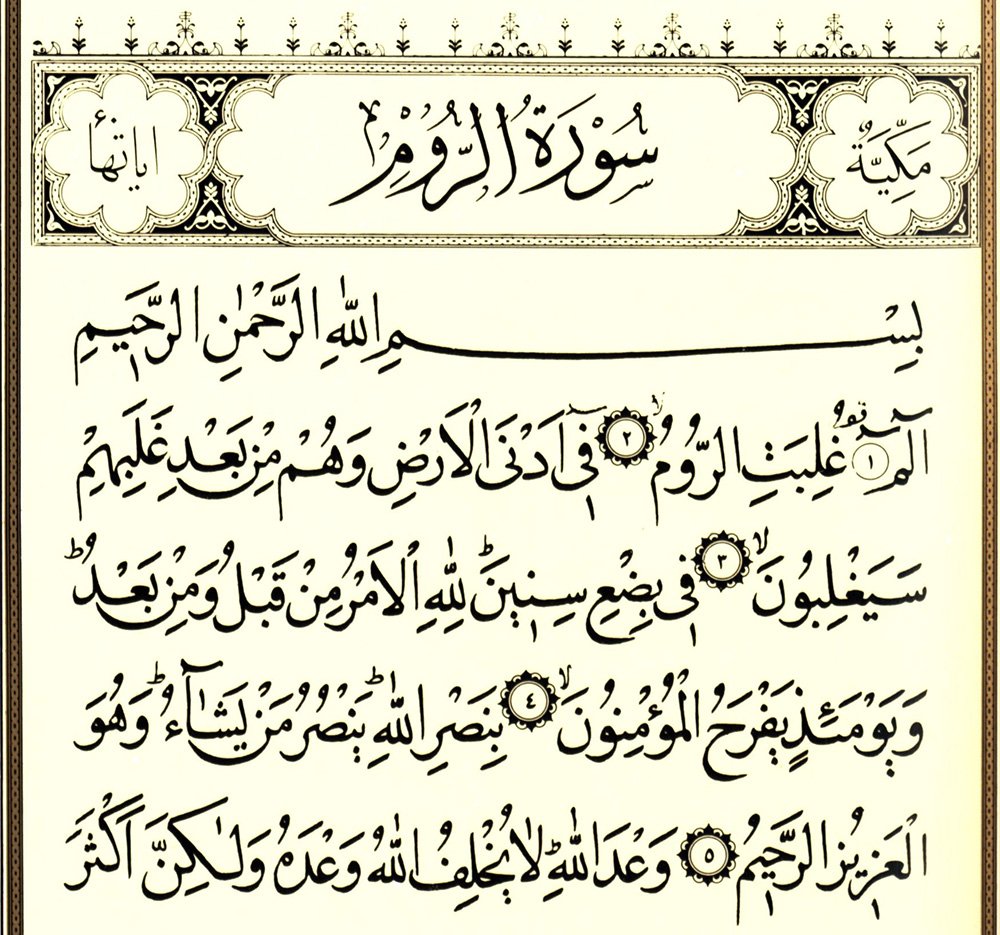 مَكِّيَّةٌ
سُوْرَةُ الرُّوْمِ
اياتها ٦٠
بِسْمِ اللّٰهِ الرَّحْمٰنِ الرَّحٖيمِ
الٓمٓ ۝١ غُلِبَتِ الرُّومُ ۝٢ فٖٓى اَدْنَى الْاَرْضِ وَهُمْ مِنْ بَعْدِ غَلَبِهِمْ
سَيَغْلِبُونَ ۝٣ فٖى بِضْعِ سِنٖينَ لِلّٰهِ الْاَمْرُ مِنْ قَبْلُ وَمِنْ بَعْدُ
وَيَوْمَئِذٍ يَفْرَحُ الْمُؤْمِنُونَ ۝٤ بِنَصْرِ اللّٰهِ يَنْصُرُ مَنْ يَشَٓاءُ وَهُوَ
الْعَزٖيزُ الرَّحٖيمُ ۝٥ وَعْدَ اللّٰهِ لَا يُخْلِفُ اللّٰهُ وَعْدَهُ وَلٰكِنَّ اَكْثَرَ